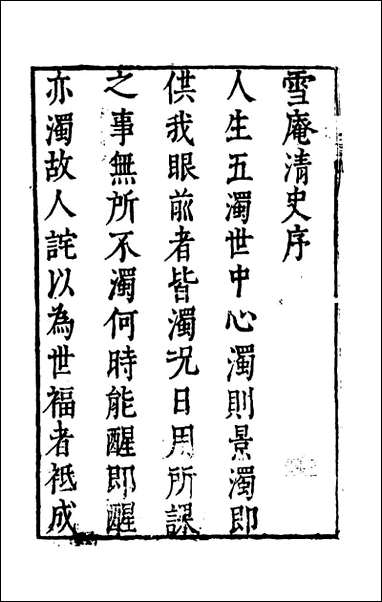 雪庵清史序
人生五濁世中心濁則景濁即
供我眼前者皆濁况日用所課
之事無所不濁何時能醒即醒
亦濁故人詫以為世福者祗成